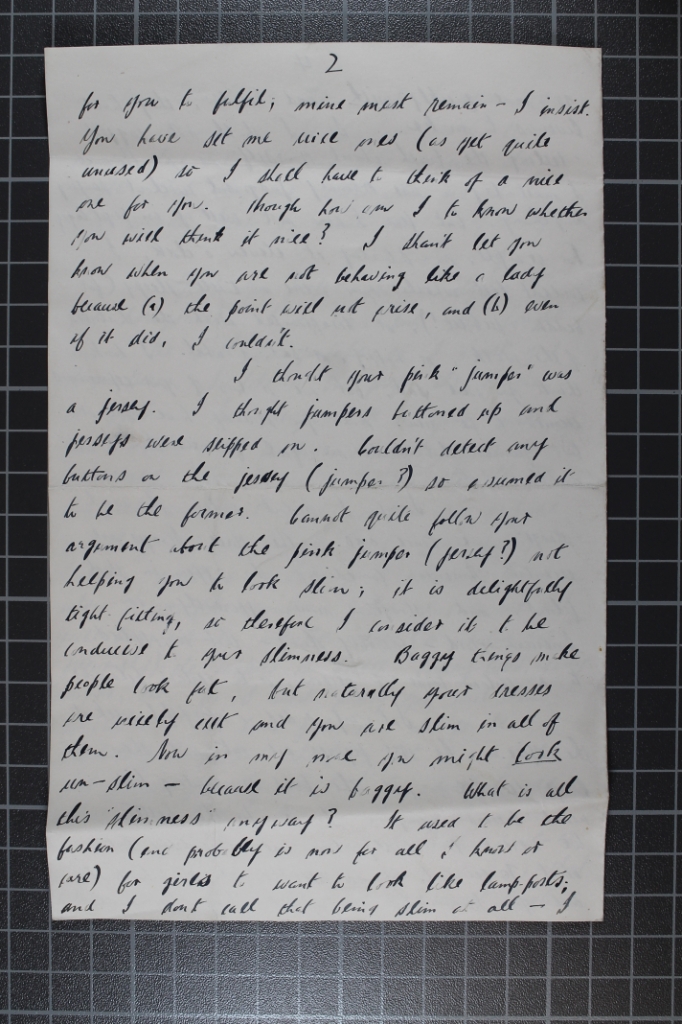 2
for you to fulfil; mine must remain - I insist.
You have set me nice ones (as yet quite
unused) so I shall have to think of a nice
one for you. Though how am I to know whether
you will think it nice? I shan't let you
know when you are not behaving like a lady
because (a) the point will not arise, and (b) even
if it did, I couldn't.
I thought your pink "jumper" was
a jersey. I thought jumpers buttoned up and
jerseys were slipped on. Couldn't detect any
buttons on the jersey (jumper?) so assumed it
to be the former. Cannot quite follow your
argument about the pink jumper (jersey?) not
helping you to look slim; it is delightfully
tight-fitting, so therefore I consider it to be
conducive to your slimness. Baggy things make
people look fat, but naturally your dresses
are nicely cut and you are slim in all of
them. Now in my you might look
un-slim - because it is baggy. What is all
this "slimness" anyway? It used to be the
fashion (and probably is now for all I know or
care) for girls to want to look like lamp-posts;
and I don't call that being slim at all - I